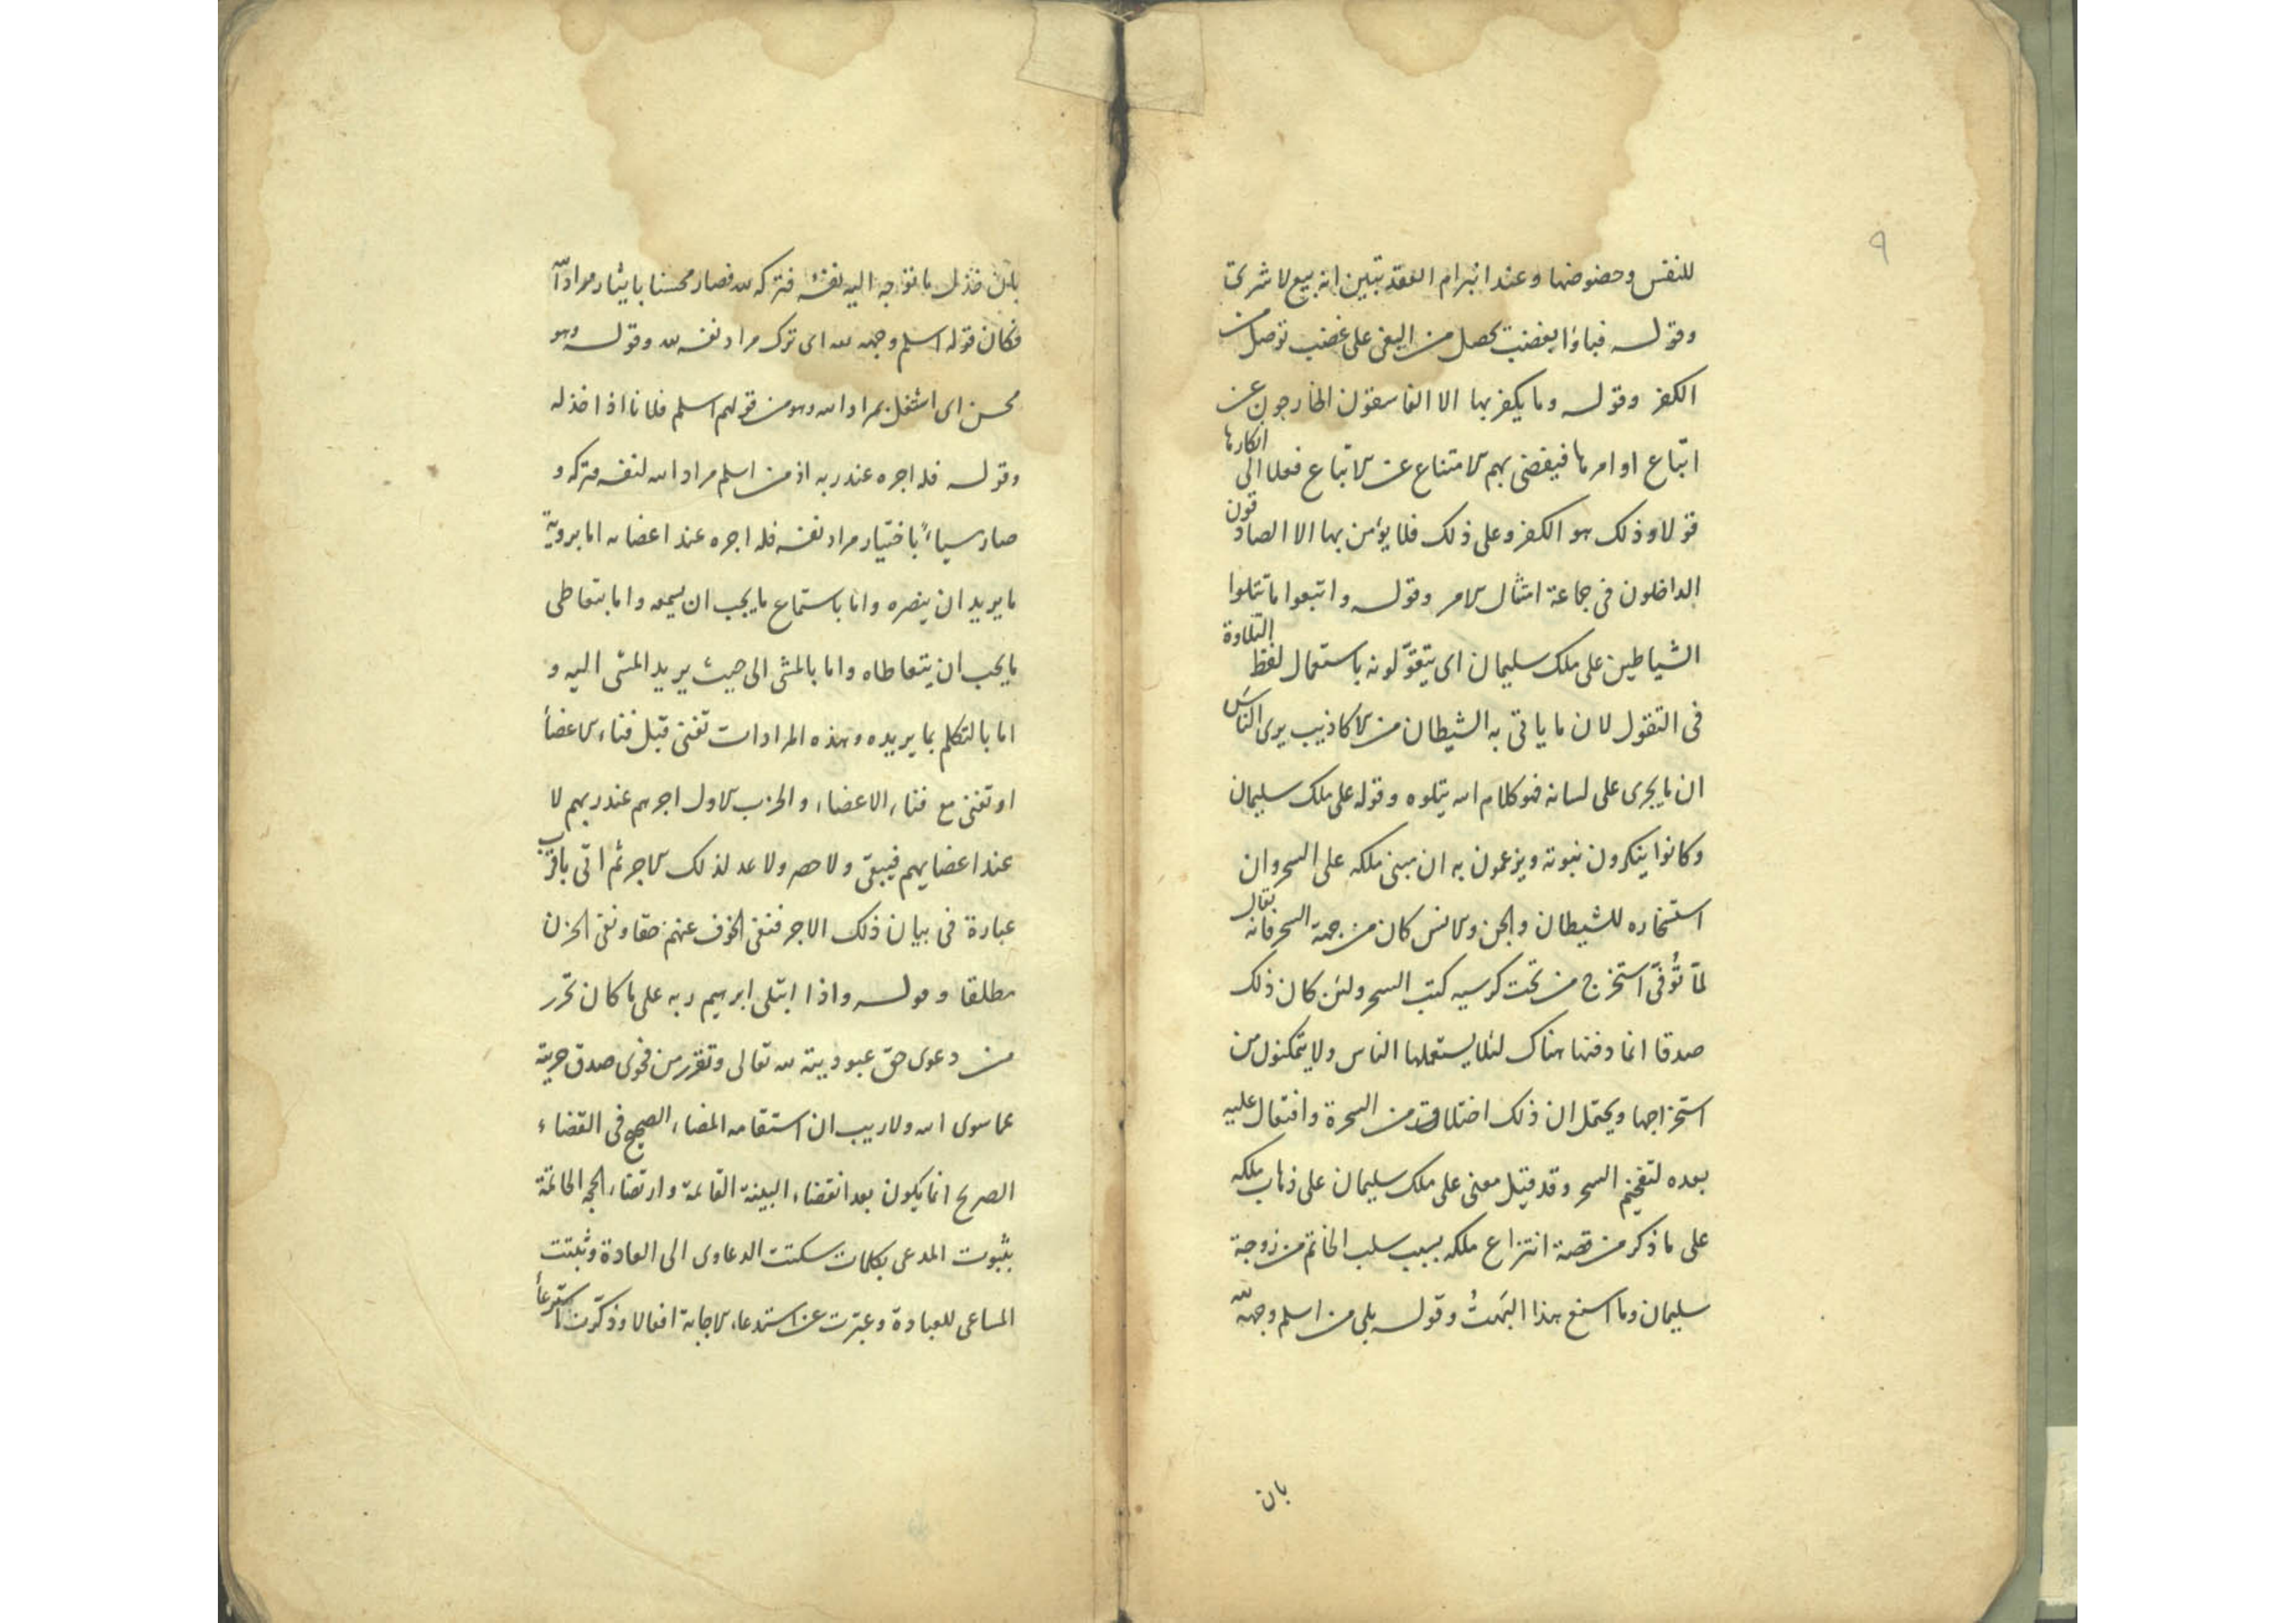 ٩
للنفس وحضوضها وعند انبرام العقد تبين انه بيع لا شرى
وقوله فباؤا بغضب يحصل من البغى على غضب توصل من
الكفر وقوله وما يكفر بها الا الفاسقون الخارجون عن
اتباع اوامرها فيفضى بهم الامتناع عن الاتباع فعلا الى انكارها
قولا وذلك هو الكفر وعلى ذلك فلا يؤمن بها الا الصادقون
الداخلون فى جماعة امتثال الامر وقوله واتبعوا ما تتلوا
الشياطين على ملك سليمان اى يتقوّلونه باستعمال لفظ التلاوة
فى التقول لان ما ياتى به الشيطان من الاكاذيب يرى الناس
ان ما يجرى على لسانه فهو كلام الله يتلوه وقوله على ملك سليمان
وكانوا ينكرون نبوته ويزعمون به ان مبنى ملكه على السحر وان
استخاره للشيطان والجن والانس كان من جهة السحر فانه يقال
لمّا تُوفّى استخرج من تحت كرسيه كتب السحر ولئن كان ذلك
صدقا انما دفنها هناك لئلا يستعملها الناس ولا يتمكنون من
استخراجها ويحتمل ان ذلك اختلاق من السحرة وافتعال عليه
بعده لتفخيم السحر وقد قيل معنى على ملك سليمان على ذهاب ملكه
على ما ذكر من قصة انتزاع ملكه بسبب سلب الخاتم من زوجة
سليمان وما اسنع هذا البَهتُ وقوله بلى من اسلم وجهه لله
بان
بان خذل ما توجه اليه نفسه فتركه لله فصار محسنا بايثار مراد الله
فكان قوله اسلم وجهه لله اى ترك مراد نفسه لله وقوله وهو
محسن اى اشتغل بمراد الله وهو من قولهم اسلم فلانا اذا خذله
وقوله فله اجره عند ربه اذ من اسلم مراد الله لنفسه فتركه و
صار سياءً باختيار مراد نفسه فله اجره عند اعضائه اما بروية
ما يريد ان ينصره واما باستماع ما يجب ان يسمعه واما بتعاطى
ما يحب ان يتعاطاه واما بالمشى الى حيث يريد المشى اليه و
اما بالتكلم بما يريده وهذه المرادات تفنى قبل فناء الاعضأ
او تفنى مع فناء الاعضاء والحزب الاول اجرهم عند ربهم لا
عند اعضايهم فيبقى ولا حصر ولا عد لذلك الاجر ثم اتى باقرب
عبارة فى بيان ذلك الاجر فنفى الخوف عنهم حقا ونفى الحزن
مطلقا وقوله واذا ابتلى ابرهيم ربه على ما كان تحرر
من دعوى حق عبوديته لله تعالى وتقرر من فحوى صدق حريته
عما سوى الله ولا ريب ان استقامه المضاء الصحيح فى القضاء
الصريح انما يكون بعد انقضاء البينة القائمة وارتضاء الحجه الحاتمة
بثبوت المدعى بكلمات سكتت الدعاوى الى العادة وثبتت
المساعى للعبادة وعبّرت عن استدعاء الاجابة افعالا وذكّرت